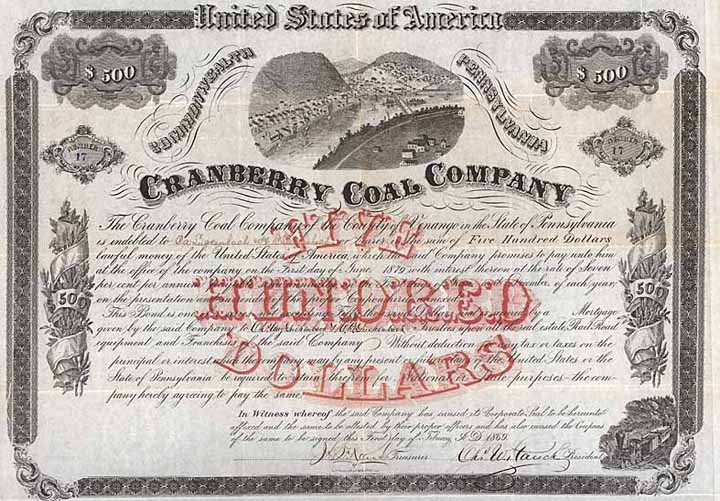 United States of America
$500
COMMONWEALTH
PENNSYLVANIA
$500
NUMBER
17
NUMBER
17
CRANBERRY COAL COMPANY
The Cranberry Coal Company of the County of Venango in the State of Pennsylvania
is indebted to or bearer in the sum of Five Hundred Dollars
lawful money of the United States of America, which the said Company promises to pay unto him
at the office of the company on the First day of June 1879 with interest thereon at the rate of Seven
per cent per annum of each year,
on the presentation annexed
This Bond is one a Mortgage
given by the said Company to Trustee upon all real estate, Rail Road,
equipment and Franchises of the said Company Without deduction of any tax or taxes on the
principal or interest which the company may by any present or law of the United States or the
State of Pennsylvania be required to retain therefrom for National or State purposes the com-
pany hereby agreeing to pay the same
FIVE
HUNDRED
DOLLARS
500
500
In Witness whereof the said Company has caused its Corporate Seal to be hereunto
affixed and the same to be attested by their proper officers and has also caused the Coupons
of the same to be signed this First day of A.D. 1869.
Treasurer
President